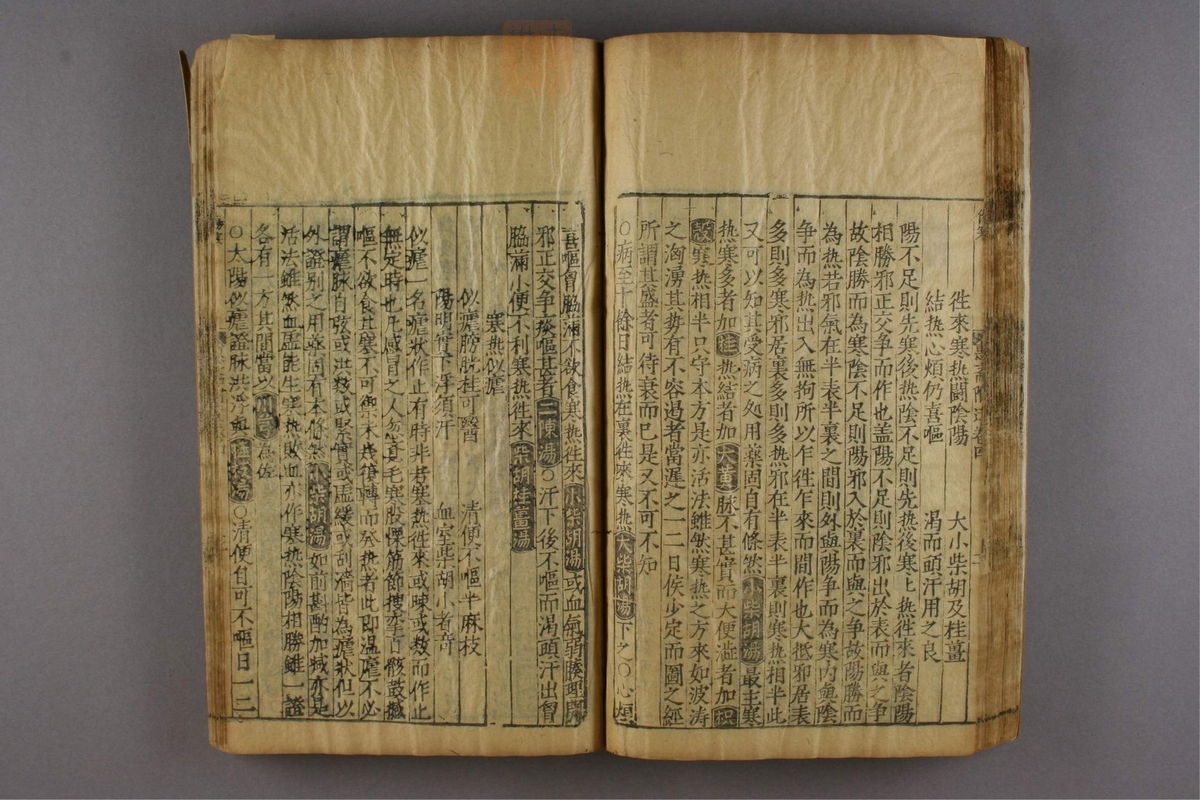 徃來寒热闘陰陽　大小柴胡及桂薑
結热心煩仍喜嘔　渴而頭汗用之良
陽不足則先寒後热陰不足則先热後寒上热徃來者陰陽
相勝邪正交争而作也盖陽不足則陰邪出於表而與之争
故陰勝而為寒陰不足則陽邪入於裏而與之争故陽勝而
為热若邪氣在半表半裏之間則外與陽争而為寒内與陰
争而為热出入無拘所以乍徃乍來而間作也大抵邪居表
多則多寒邪居裏多則多热邪在半表半裏則寒热相半此
又可以知其受病之処用藥固自有條然小柴胡湯最主寒
热寒多者加桂热結者加大黄脉不甚實而大便溢者加枳
殻寒热相半只守本方是亦活法雖然寒热之方來如波涛
之洶湧其勢有不容遏者當遲之一二日俟少定而圖之経
所謂其盛者可待衰而已是又不可不知
〇病至十餘日結热在裏徃來寒热大柴胡湯下之〇心煩
喜嘔胷脇滿不欲食寒热徃來小柴胡湯或血氣弱腠理開
邪正交争痰嘔甚者二陳湯〇汗下後不嘔而渴頭汗出胷
脇滿小便不利寒热徃來柴胡桂薑湯
寒热似瘧
似瘧膀胱桂可醫　清便不嘔半麻枝
陽明實下浮須汗　血室柴胡小者竒
似瘧一名瘧狀作止有時非若寒热徃來或踈或数而作止
無定時也凡感冒之人忽覺毛寒股慄筋節拘百骸鼓撼
嘔不欲食其寒不可禦未幾復轉而發热者此即温瘧不必
謂瘧脉自弦或洪数或緊實或虚緩或刮濇皆為瘧狀但以
外證别之用藥固有本條然小柴胡湯如前斟酌加减亦是
活法雖然血虚能生寒热敗血亦作寒热陰陽相勝雖一證
各有一方其間當以川芎為佐
〇太陽似瘧證脉洪浮如桂枝湯〇清便自可不嘔日二三